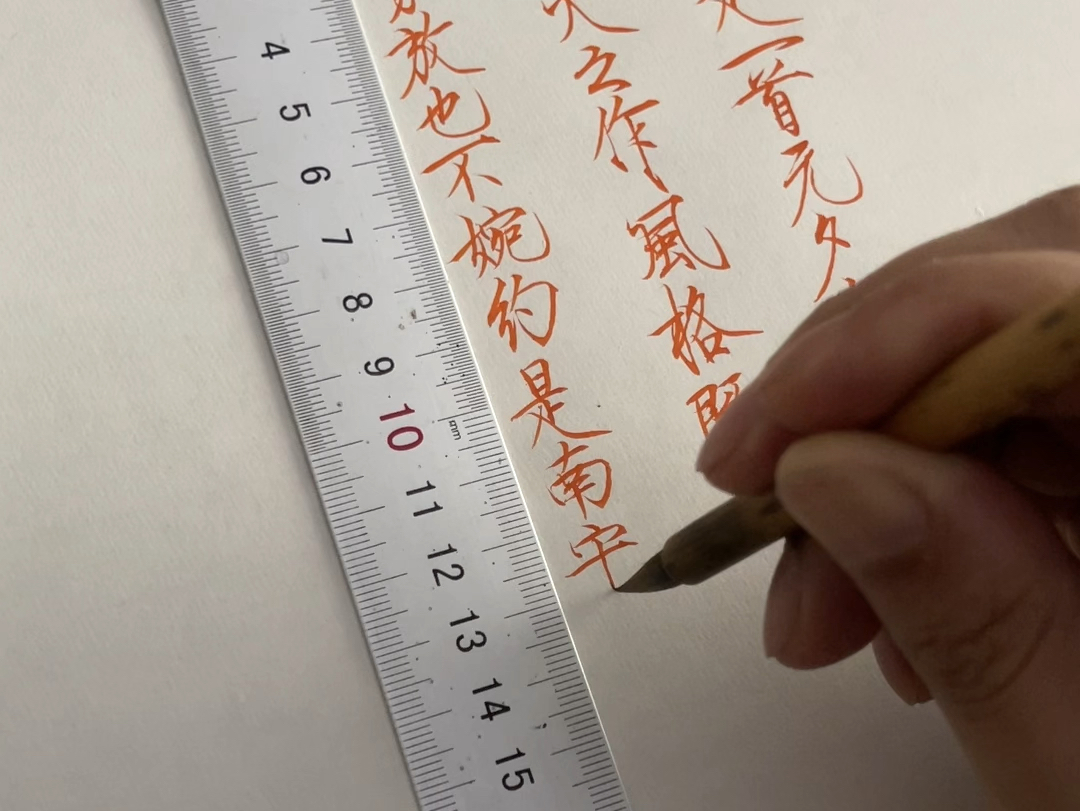 一首元夕
之作風格
放也不婉約是南宋
4
5
6
7
8
9
10
mm
11
12
13
14
15